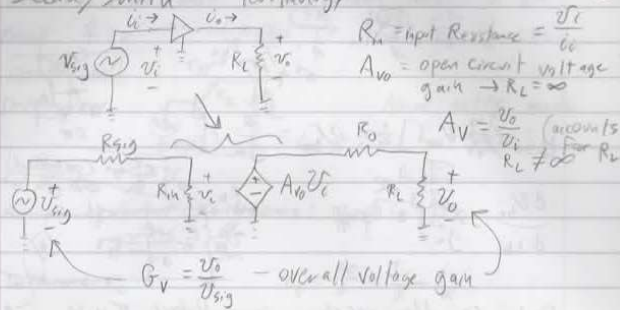 i_i → i_o →
V_sig + v_i - R_L + v_o -
R_in = input Resistance = v_i / i_i
A_vo = open circuit voltage
gain → R_L = ∞
A_v = v_o / v_i (accounts
for R_L
R_L ≠ ∞
R_sig R_o
+ v_sig - R_in + v_i - + - A_vo v_i R_L + v_o -
G_v = v_o / v_sig - overall voltage gain